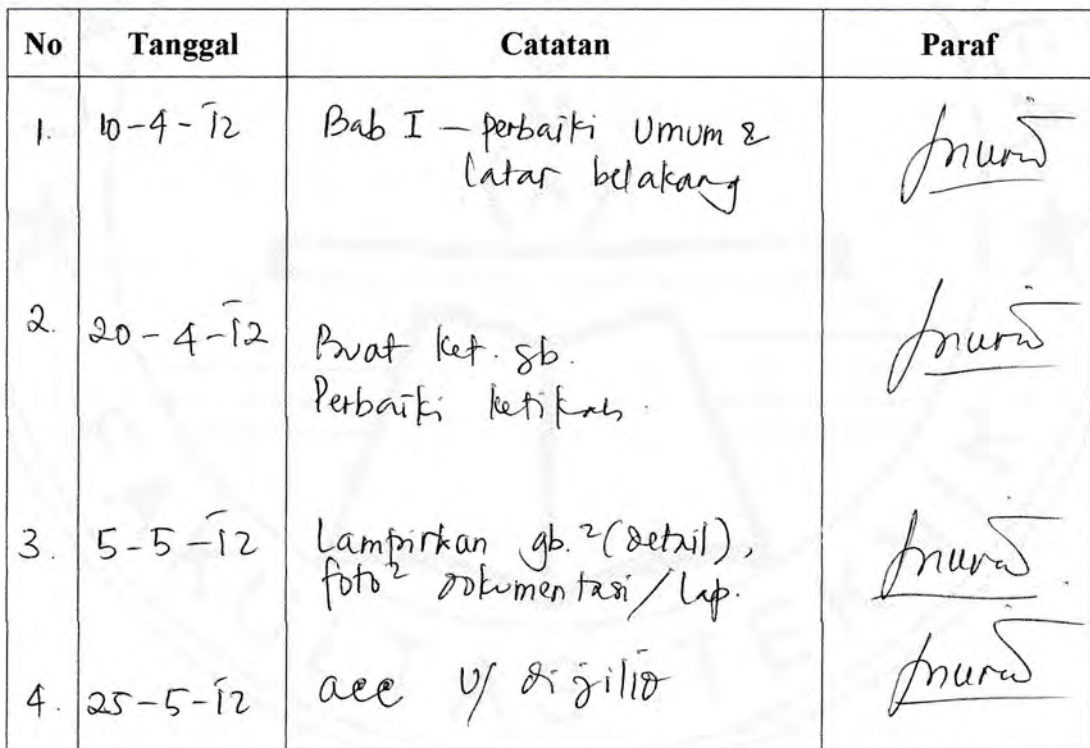 No Tanggal Catatan Paraf
1. 10-4-12 Bab I - perbaiki Umum &
latar belakang
2. 20-4-12 Buat ket. gb.
Perbaiki ketikan.
3. 5-5-12 Lampirkan gb.² (detail),
foto² dokumentasi/lap.
4. 25-5-12 acc U/